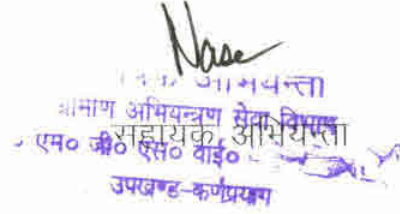 अभियन्ता
ग्रामीण अभियन्त्रण सेवा विभाग
सहायक अभियन्ता
एम० जी० एस० वाई०
उपखण्ड-कर्णप्रयाग